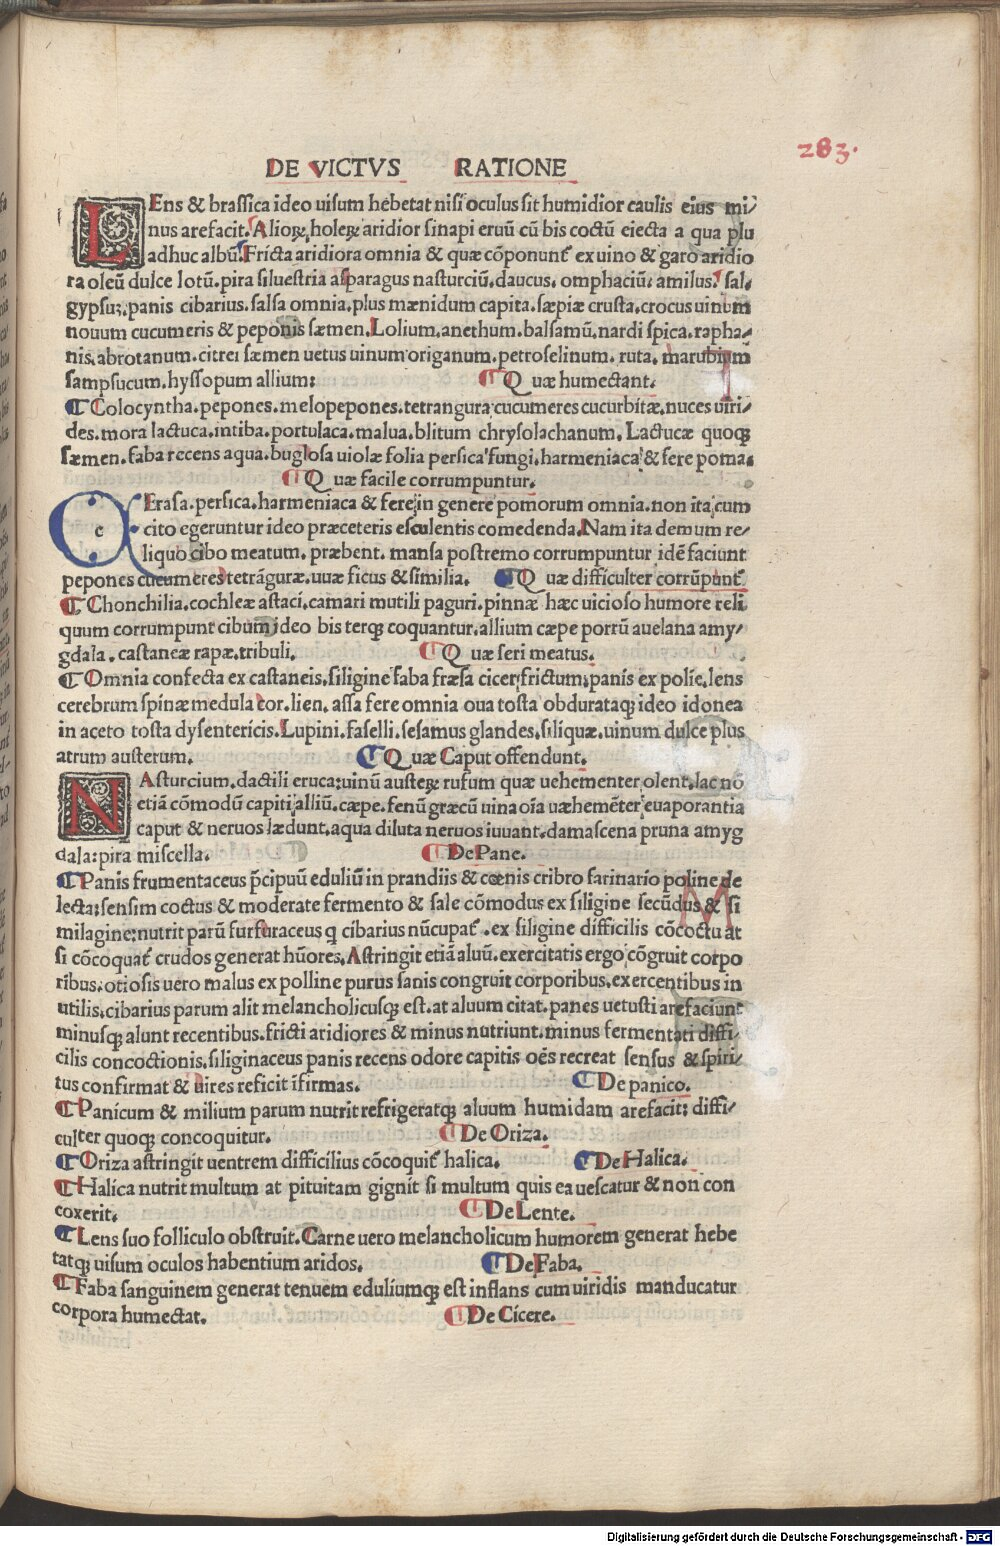 283.
DE VICTVS RATIONE
LEns & brassica ideo uisum hebetat nisi oculus sit humidior caulis eius mi/
nus arefacit. Alioꝝ, holeꝝ aridior sinapi eruū cū bis coctū eiecta a qua plu
adhuc albū. Fricta aridiora omnia & quæ cōponunt᷑ ex uino & garo aridio
ra oleū dulce lotū. pira siluestria asparagus nasturciū. daucus. omphaciū. amilus. sal.
gypsuꝫ. panis cibarius. salsa omnia. plus mænidum capita. sæpiæ crusta. crocus uinum
nouum cucumeris & peponis sæmen. Lolium. anethum. balsamū. nardi spica. rapha/
nis. abrotanum. citrei sæmen uetus uinum origanum. petroselinum. ruta. marubium
sampsucum. hyssopum allium: ¶ Quæ humectant.
¶ Colocyntha. pepones. melopepones. tetrangura cucumeres cucurbitæ. nuces uiri/
des. mora lactuca. intiba. portulaca. malua. blitum chrysolachanum. Lactucæ quoqꝫ
sæmen. faba recens aqua. buglosa uiolæ folia persica fungi. harmeniaca & fere poma.
¶ Quæ facile corrumpuntur.
CErasa. persica. harmeniaca & fere in genere pomorum omnia. non ita cum
cito egeruntur ideo præceteris esculentis comedenda. Nam ita demum re/
liquo cibo meatum. præbent. mansa postremo corrumpuntur idē faciunt
pepones cucumeres tetrāguræ. uuæ ficus & similia. ¶ Quæ difficulter corrūpunt᷑
¶ Chonchilia. cochleæ astaci. camari mutili paguri. pinnæ hæc uicioso humore reli
quum corrumpunt cibum ideo bis terqꝫ coquantur. allium cæpe porrū auelana amy/
gdala. castaneæ rapæ. tribuli. ¶ Quæ seri meatus.
¶ Omnia confecta ex castaneis. siligine faba fræsa cicer frictum. panis ex polie. lens
cerebrum spinæ medula cor. lien. assa fere omnia oua tosta obdurataqꝫ ideo idonea
in aceto tosta dysentericis. Lupini. faselli. sesamus glandes. siliquæ. uinum dulce plus
atrum austerum. ¶ Quæ Caput offendunt.
NAsturcium. dactili eruca: uinū austeꝝ rufum quæ uehementer olent. lac nō
etiā cōmodū capiti alliū. cæpe. fenū græcū uina oīa uæhemēter euaporantia
caput & neruos lædunt. aqua diluta neruos iuuant. damascena pruna amyg
dala: pira miscella. ¶ De Pane.
¶ Panis frumentaceus p̄cipuū eduliū in prandiis & cœnis cribro farinario poline de
lecta: sensim coctus & moderate fermento & sale cōmodus ex siligine secūdus & si
milagine: nutrit parū furfuraceus q cibarius nūcupat᷑. ex siligine difficilis cōcoctu at
si cōcoquat᷑ crudos generat hūores. Astringit etiā aluū. exercitatis ergo cōgruit corpo
ribus. otiosis uero malus ex polline purus sanis congruit corporibus. exercentibus in
utilis. cibarius parum alit melancholicusqꝫ est. at aluum citat. panes uetusti arefaciunt
minusqꝫ alunt recentibus. fricti aridiores & minus nutriunt. minus fermentati diffi/
cilis concoctionis. siliginaceus panis recens odore capitis oēs recreat sensus & spiri/
tus confirmat & uires reficit īfirmas. ¶ De panico.
¶ Panicum & milium parum nutrit refrigeratqꝫ aluum humidam arefacit: diffi/
culter quoqꝫ concoquitur. ¶ De Oriza.
¶ Oriza astringit uentrem difficilius cōcoquit᷑ halica. ¶ De Halica.
¶ Halica nutrit multum at pituitam gignit si multum quis ea uescatur & non con
coxerit. ¶ De Lente.
¶ Lens suo folliculo obstruit. Carne uero melancholicum humorem generat hebe
tatqꝫ uisum oculos habentium aridos. ¶ De Faba.
¶ Faba sanguinem generat tenuem eduliumqꝫ est inflans cum uiridis manducatur
corpora humectat. ¶ De Cicere.
Digitalisierung gefördert durch die Deutsche Forschungsgemeinschaft - DFG